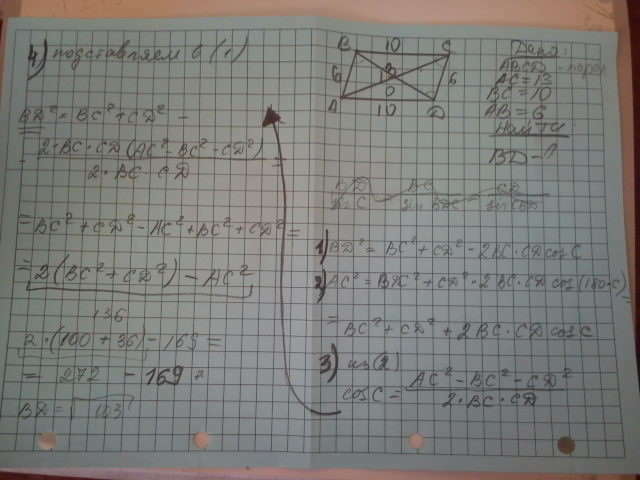 4) подставляем в (1)
BD² = BC² + CD² -
- 2·BC·CD(AC² - BC² - CD²) / 2·BC·CD =
= BC² + CD² - AC² + BC² + CD² =
= 2(BC² + CD²) - AC²
136
2·(100 + 36) - 169 =
= 272 - 169 =
BD = √103
B 10 C
6 13 6
O
A 10 D
Дано:
ABCD - парал
AC = 13
BC = 10
AB = 6
Найти
BD - ?
1) BD² = BC² + CD² - 2BC·CD cos C
2) AC² = BC² + CD² - 2BC·CD cos(180-C) =
= BC² + CD² + 2BC·CD cos C
3) из (2)
cos C = AC² - BC² - CD² / 2·BC·CD